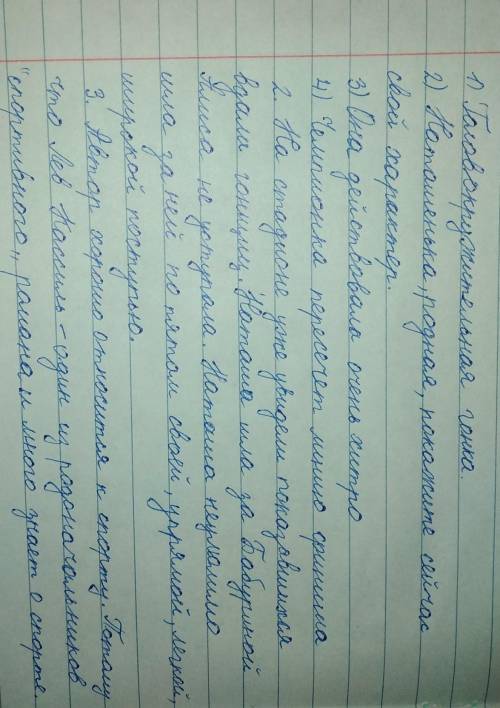 1) Головокружительная гонка.
2) Наташенька, родная, покажите сейчас
свой характер.
3) Она действовала очень хитро
4) Чемпионка пересечет линию финиша
2. На стадионе уже увидели показавшихся
вдали гонщиц. Наташа шла за Бабуриной
Алиса не уступала. Наташа неумолимо
шла за ней по пятам своей, упрямой, легкой,
широкой поступью.
3. Автор хорошо относится к спорту. Потому
что Лев Кассиль - один из родоначальников
"спортивного" романа и много знает о спорте.